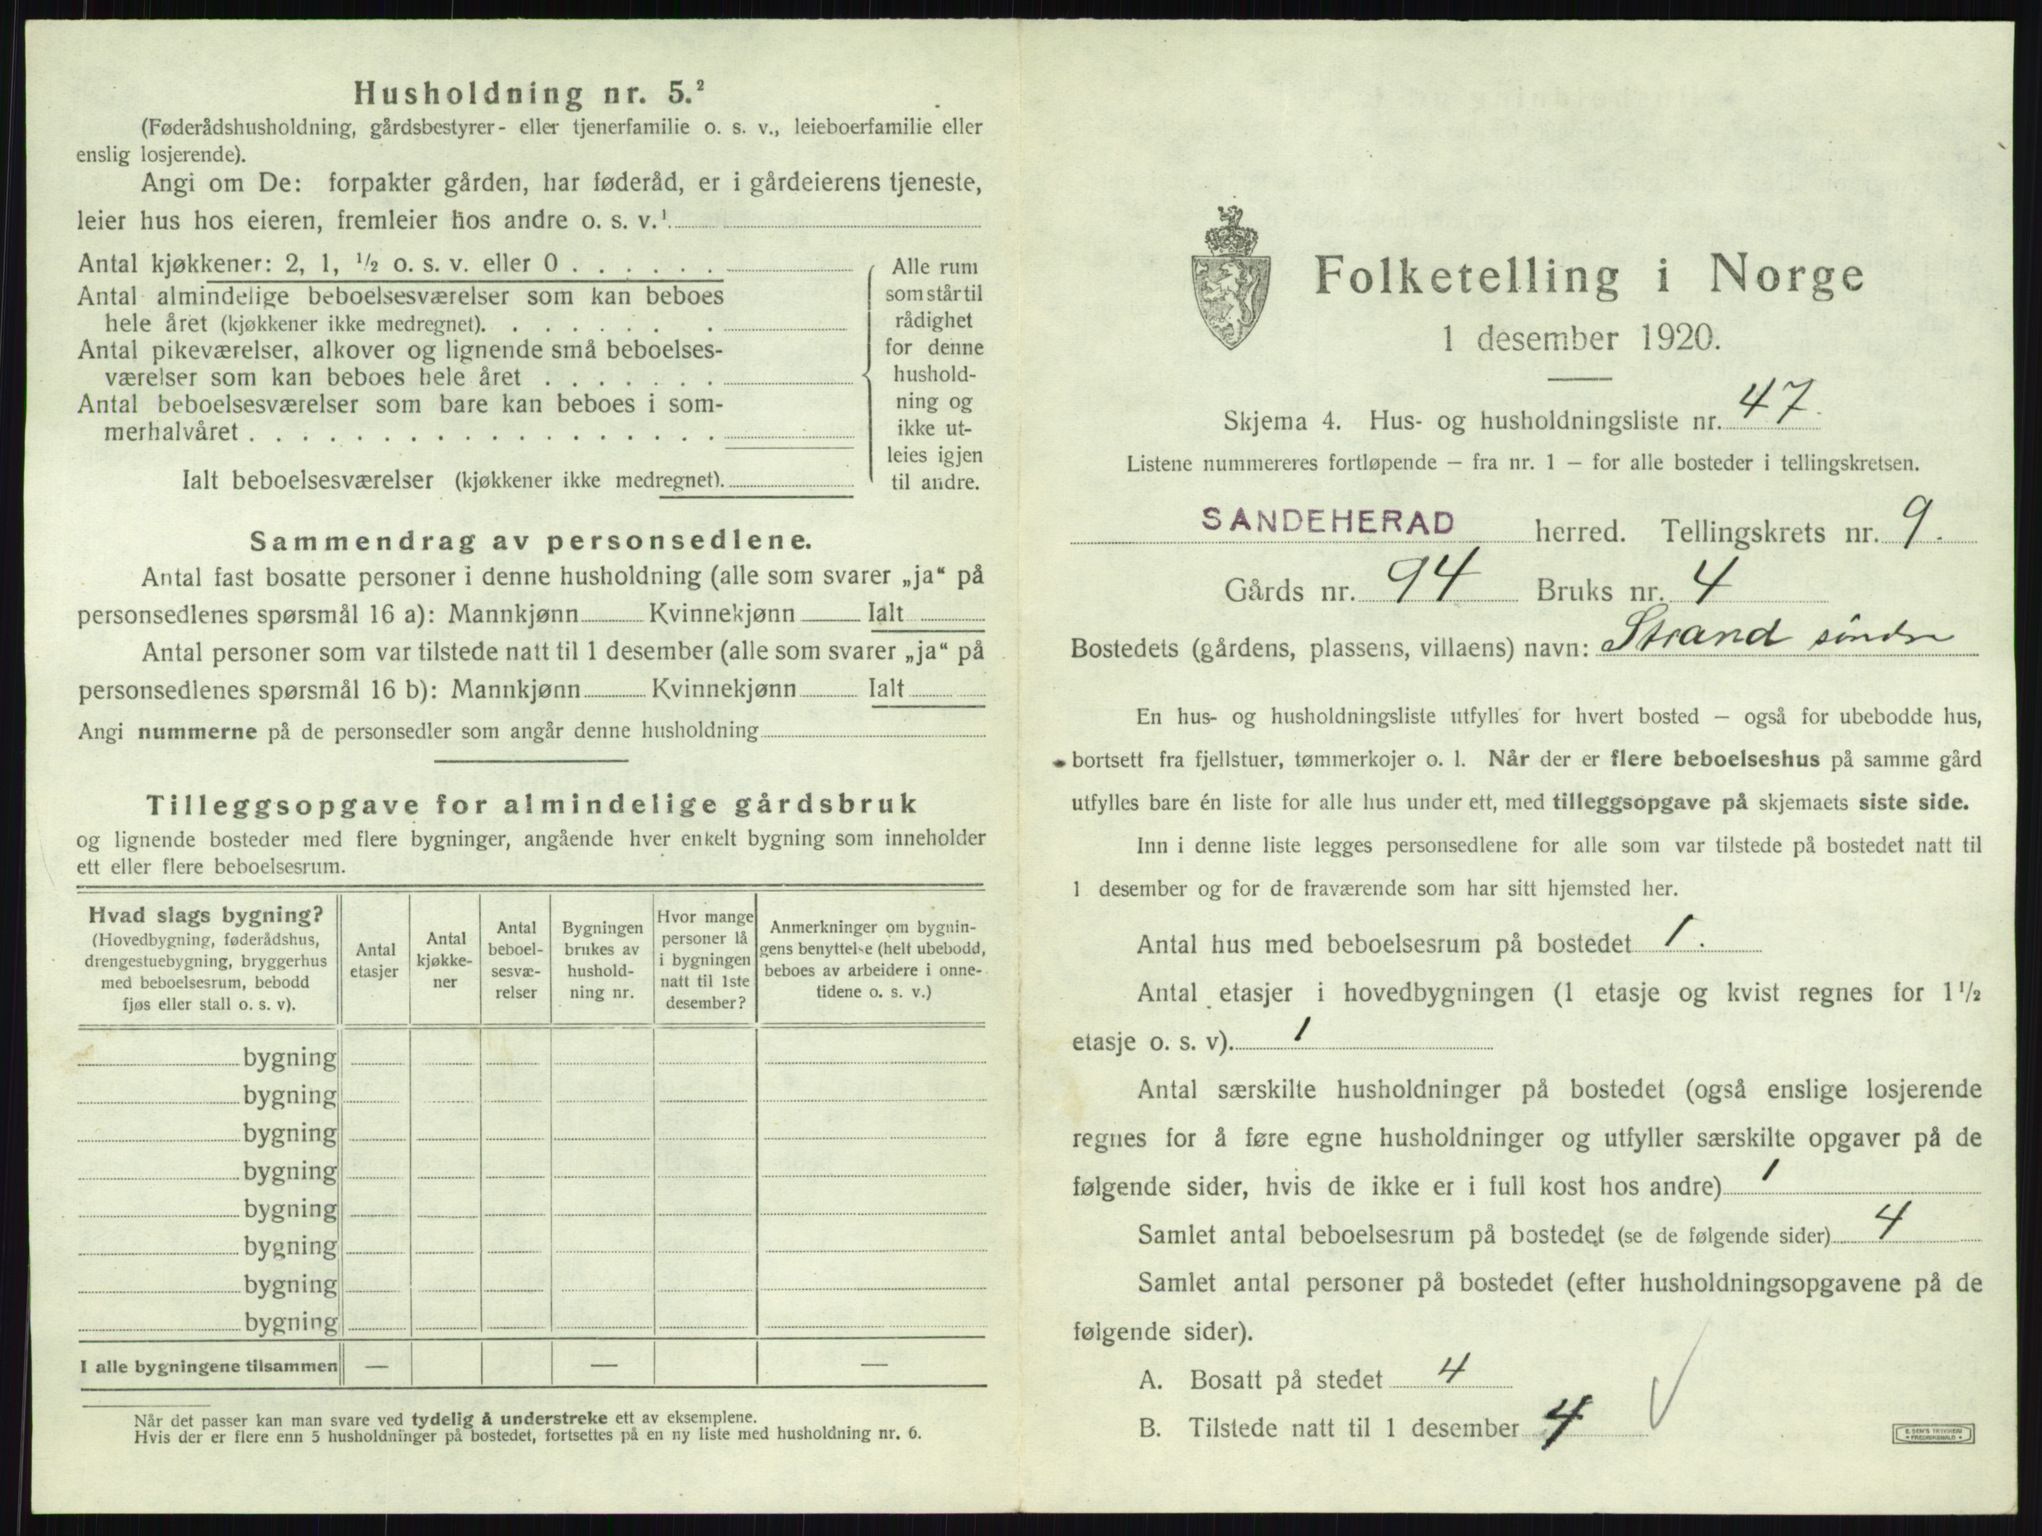 Husholdning nr. 5.²
(Føderådshusholdning, gårdsbestyrer- eller tjenerfamilie o. s. v., leieboerfamilie eller
enslig losjerende).
Angi om De: forpakter gården, har føderåd, er i gårdeierens tjeneste,
leier hus hos eieren, fremleier hos andre o. s. v.¹
Antal kjøkkener: 2, 1, ½ o. s. v. eller 0 . . . . . .
Antal almindelige beboelsesværelser som kan beboes
hele året (kjøkkener ikke medregnet). . . . . . . .
Antal pikeværelser, alkover og lignende små beboelses-
værelser som kan beboes hele året . . . . . . .
Antal beboelsesværelser som bare kan beboes i som-
merhalvåret . . . . . . . . . . . . . . . . . .
Ialt beboelsesværelser (kjøkkener ikke medregnet).
Alle rum
som står til
rådighet
for denne
hushold-
ning og
ikke ut-
leies igjen
til andre.
Sammendrag av personsedlene.
Antal fast bosatte personer i denne husholdning (alle som svarer „ja“ på
personsedlenes spørsmål 16 a): Mannkjønn Kvinnekjønn Ialt
Antal personer som var tilstede natt til 1 desember (alle som svarer „ja“ på
personsedlenes spørsmål 16 b): Mannkjønn Kvinnekjønn Ialt
Angi nummerne på de personsedler som angår denne husholdning
Tilleggsopgave for almindelige gårdsbruk
og lignende bosteder med flere bygninger, angående hver enkelt bygning som inneholder
ett eller flere beboelsesrum.
Hvad slags bygning?
(Hovedbygning, føderådshus,
drengestuebygning, bryggerhus
med beboelsesrum, bebodd
fjøs eller stall o. s. v).
Antal
etasjer
Antal
kjøkke-
ner
Antal
beboel-
sesvæ-
relser
Bygningen
brukes av
hushold-
ning nr.
Hvor mange
personer lå
i bygningen
natt til 1ste
desember?
Anmerkninger om bygnin-
gens benyttelse (helt ubebodd,
beboes av arbeidere i onne-
tidene o. s. v.)
bygning
bygning
bygning
bygning
bygning
bygning
bygning
bygning
I alle bygningene tilsammen — — —
Når det passer kan man svare ved tydelig å understreke ett av eksemplene.
Hvis der er flere enn 5 husholdninger på bostedet, fortsettes på en ny liste med husholdning nr. 6.
Folketelling i Norge
1 desember 1920.
Skjema 4. Hus- og husholdningsliste nr. 47.
Listene nummereres fortløpende – fra nr. 1 – for alle bosteder i tellingskretsen.
SANDEHERAD herred. Tellingskrets nr. 9.
Gårds nr. 94 Bruks nr. 4
Bostedets (gårdens, plassens, villaens) navn: Strand søndre
En hus- og husholdningsliste utfylles for hvert bosted – også for ubebodde hus,
bortsett fra fjellstuer, tømmerkojer o. l. Når der er flere beboelseshus på samme gård
utfylles bare én liste for alle hus under ett, med tilleggsopgave på skjemaets siste side.
Inn i denne liste legges personsedlene for alle som var tilstede på bostedet natt til
1 desember og for de fraværende som har sitt hjemsted her.
Antal hus med beboelsesrum på bostedet 1.
Antal etasjer i hovedbygningen (1 etasje og kvist regnes for 1½
etasje o. s. v). 1
Antal særskilte husholdninger på bostedet (også enslige losjerende
regnes for å føre egne husholdninger og utfyller særskilte opgaver på de
følgende sider, hvis de ikke er i full kost hos andre) 1
Samlet antal beboelsesrum på bostedet (se de følgende sider) 4
Samlet antal personer på bostedet (efter husholdningsopgavene på de
følgende sider).
A. Bosatt på stedet 4
B. Tilstede natt til 1 desember 4